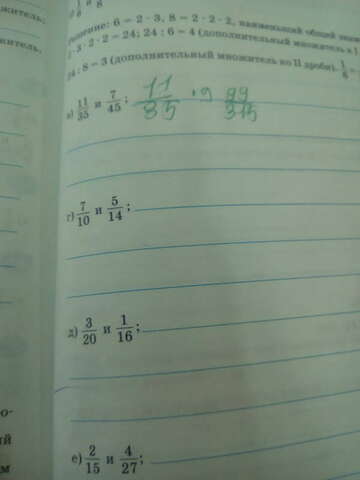 житель;
6 и 8
Решение: 6 = 2 · 3, 8 = 2 · 2 · 2, наименьший общий
2 · 3 · 2 · 2 = 24; 24 : 6 = 4 (дополнительный множитель к I
житель,
24 : 8 = 3 (дополнительный множитель ко II дроби). 1/6 =
в) 11/35 и 7/45; 11/35 · 9 99/315
г) 7/10 и 5/14;
д) 3/20 и 1/16;
о-
ий
е) 2/15 и 4/27;
м